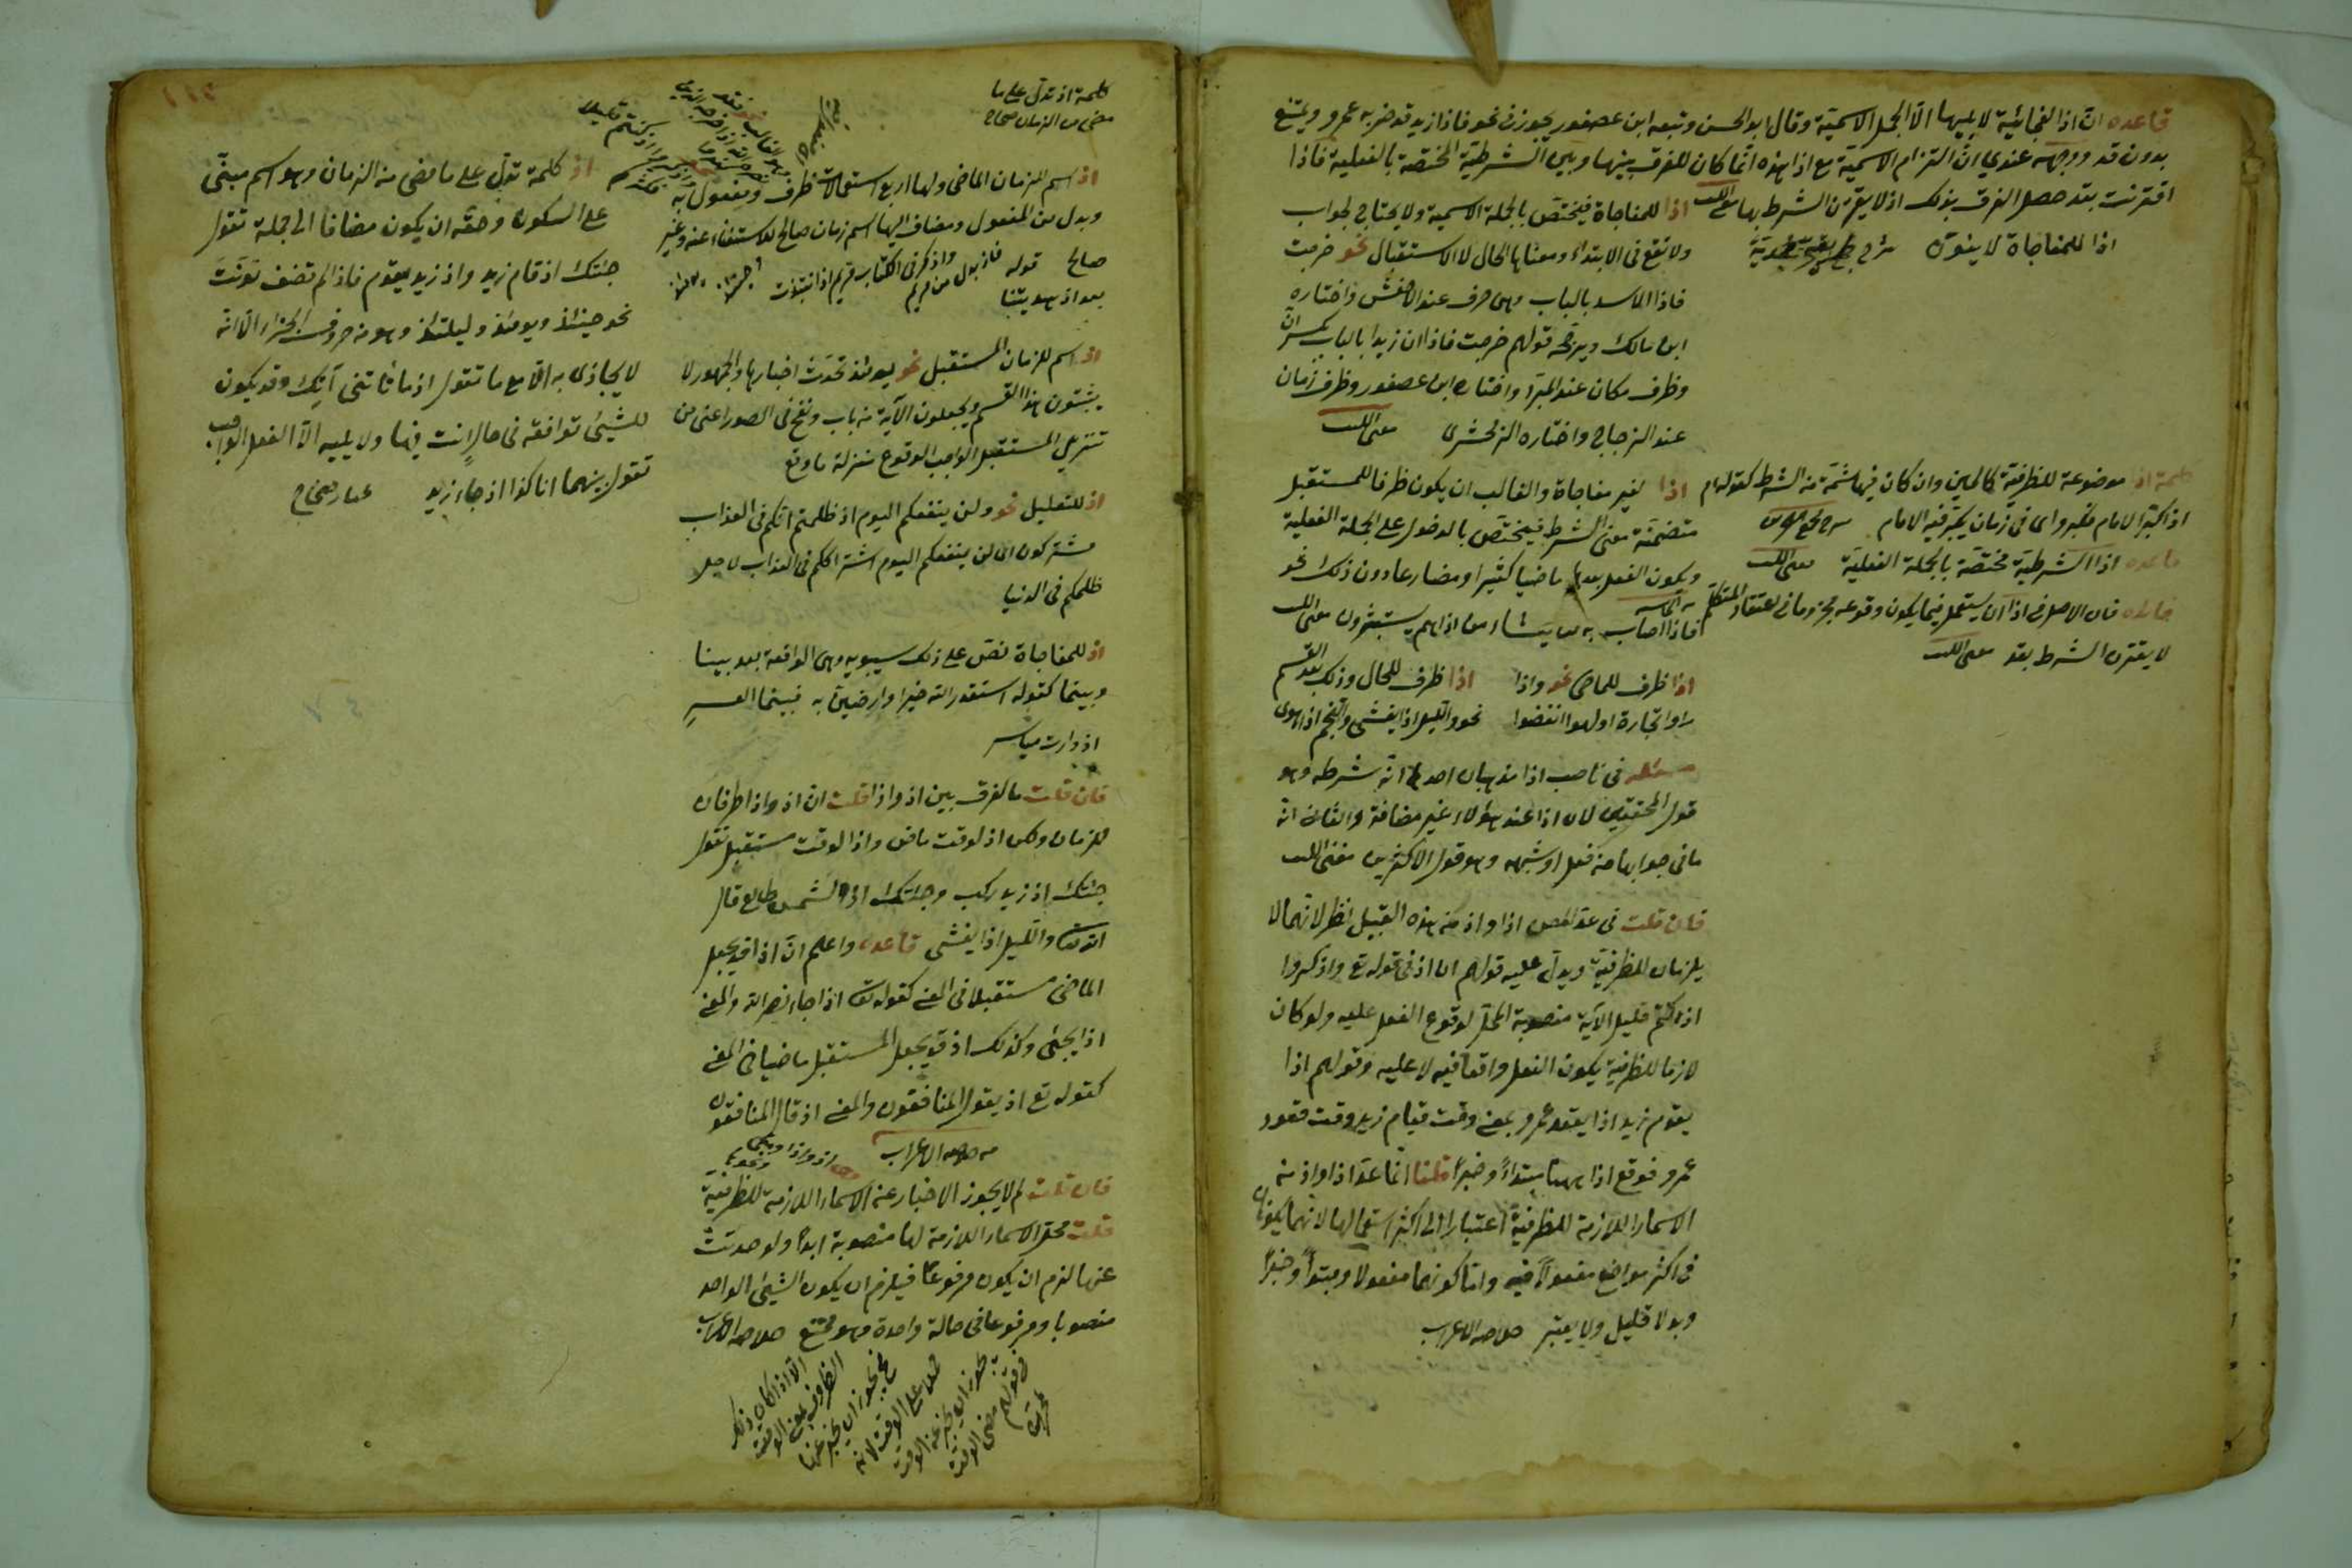 قاعده ان اذا الفجائية لا يليها الا الجمل الاسمية وقال ابو الحسن وتبعه ابن عصفور يجوز في نحو فاذا زيد قد ضربه عمرو ويمتنع
بدون قد ووجهه عندي ان التزام الاسمية مع اذا هذه انما كان للفرق بينها وبين الشرطية المختصة بالفعلية فاذا
اقترنت بقد حصل الفرق بذلك اذ لا يقترن الشرط بها مغني اللبيب
اذا للمفاجاة لا ينون
اذا للمفاجاة فيختص بالجملة الاسمية ولا يحتاج لجواب
ولا تقع في الابتداء ومعناها الحال لا الاستقبال نحو خرجت
فاذا الاسد بالباب وهي حرف عند الاخفش واختاره
ابن مالك ويرجحه قولهم خرجت فاذا ان زيدا بالباب بكسر ان
وظرف مكان عند المبرد واختاره ابن عصفور وظرف زمان
عند الزجاج واختاره الزمخشري مغني اللبيب
كلمة اذا موضوعة للظرفية كالحين وان كان فيها شمة من الشرط كقولهم
اذا كبر الامام فكبروا اي في زمان يكبر فيه الامام
قاعده اذا الشرطية مختصة بالجملة الفعلية مغني اللبيب
فائده فان الاصل في اذا ان يستعمل فيما يكون وقوعه مجزوما في اعتقاد المتكلم
لا يقترن الشرط بقد مغني اللبيب
اذا لغير مفاجاة والغالب ان يكون ظرفا للمستقبل
متضمنة معنى الشرط فيختص بالدخول على الجملة الفعلية
ويكون الفعل بعدها ماضيا كثيرا ومضارعا دون ذلك نحو
فاذا اصاب به من يشاء من اذا هم يستبشرون مغني اللبيب
اذا ظرف للماضي نحو واذا
راوا تجارة او لهوا انفضوا
اذا ظرف للحال وذلك بعد القسم
نحو والليل اذا يغشى والنجم اذا هوى
مسئله في ناصب اذا مذهبان احدها انه شرطه وهو
قول المحققين لان اذا عند هؤلاء غير مضافة والثاني انه
ما في جوابها من فعل او شبهه وهو قول الاكثرين مغني اللبيب
فان قلت في عد المص اذا واذ من هذه القبيل نظر لانهما لا
يلزمان الظرفية ويدل عليه قولهم ان اذ في قوله تع واذكروا
اذ كنتم قليل الآية منصوبة المحل لوقوع الفعل عليه ولو كان
لازما للظرفية يكون الفعل واقعا فيه لا عليه وقولهم اذا
يقوم زيد اذا يقعد عمرو بمعنى وقت قيام زيد وقت قعود
عمرو فوقع اذا ههنا مبتداً وخبراً قلنا انما عد اذا واذ من
الاسماء اللازمة للظرفية اعتبارا الى اكثر استعمالها لانهما يكونان
في اكثر مواضع مفعولا فيه واما كونهما مفعولا ومبتدأ وخبراً
وبدلا قليل ولا يعتبر
كلمة اذ تدل على ما
مضى من الزمان صحاح
اذ اسم للزمان الماضي ولها اربع استعمالات ظرف ومفعول به
وبدل من المفعول ومضاف اليها اسم زمان صالح للاستغناء عنه وغير
صالح قوله
بعد اذ هديتنا
واذكر في الكتاب مريم اذ انتبذت
فاذ بدل من مريم
اذ اسم للزمان المستقبل نحو يومئذ تحدث اخبارها والجمهور لا
يثبتون هذا القسم ويجعلون الآية من باب ونفخ في الصور اعني من
تنزيل المستقبل الواجب الوقوع منزلة ما وقع
اذ للتعليل نحو ولن ينفعكم اليوم اذ ظلمتم انكم في العذاب
مشتركون اي لن ينفعكم اليوم اشتراككم في العذاب لاجل
ظلمكم في الدنيا
اذ للمفاجاة نص على ذلك سيبويه وهي الواقعة بعد بينا
وبينما كقوله استقدر الله خيرا وارضين به فبينما العسر
اذ دارت مياسر
فان قلت ما الفرق بين اذ واذا قلت ان اذ واذا ظرفان
للزمان ولكن اذ لوقت ماض واذا لوقت مستقبل تقول
جئتك اذ زيد ركب وجئتك اذا الشمس طالع قال
الله تعالى والليل اذا يغشى قاعده واعلم ان اذا قد يجعل
الماضي مستقبلا في المعنى كقوله تعالى اذا جاء نصر الله والمعنى
اذا يجئ وكذلك اذ قد يجعل المستقبل ماضيا في المعنى
كقوله تع اذ يقول المنافقون والمعنى اذ قال المنافقون
فان قلت لم لا يجوز الاخبار عن الاسماء اللازمة للظرفية
قلت محل الاسماء اللازمة لها منصوبة ابداً ولو حدثت
عنها لزم ان يكون مرفوعاً فيلزم ان يكون الشيئ الواحد
منصوبا ومرفوعا في حالة واحدة وهو ممتنع
اذ كلمة تدل على ما مضى من الزمان وهو اسم مبنى
على السكون وحقه ان يكون مضافا الى جملة تقول
جئتك اذ قام زيد واذ زيد يقوم فاذا لم تضف نونت
نحو حينئذ ويومئذ وليلتئذ وهو من حروف الجزاء الا انه
لا يجازى به الا مع ما تقول اذ ما تاتني آتك وقد يكون
للشيئ توافقه في حال انت فيها ولا يليه الا الفعل الواجب
تقول بينهما انا كذا اذ جاء زيد